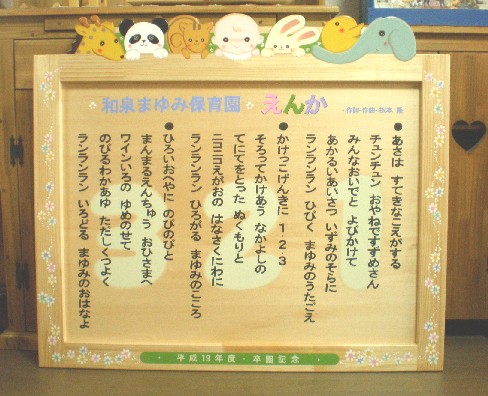 和泉まゆみ保育園
えんか
・作詞・作曲・松本
●あさは すてきなこえがする
チュンチュン おやねですずめさん
みんなおいでと よびかけて
あかるいあいさつ いずみのそらに
ランランラン ひびく まゆみのうたごえ
●かけっこげんきに 1・2・3
そろってかけあう なかよしの
てにてをとった ぬくもりと
ニコニコえがおの はなさくにわに
ランランラン ひろがる まゆみのこころ
●ひろいおへやに のびのびと
まんまるえんちゅう おひさまへ
ワインいろの ゆめのせて
のびるわかあゆ ただしくつよく
ランランラン いろどる まゆみのおはなよ
1
2
3
・平成19年度・卒園記念・